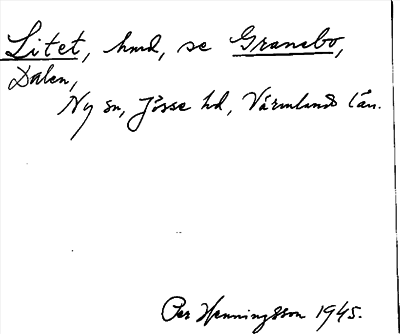 Litet, hmd, se Granebo,
Dalen,
Ny sn, Jösse hd, Värmlands län.
Per Henningsson 1945.